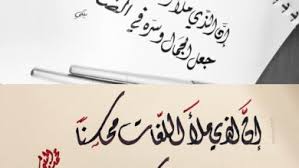 إن الذي ملأ
جعل الجمال وسره في الضا
إن الذي ملأ اللغات محاسنا